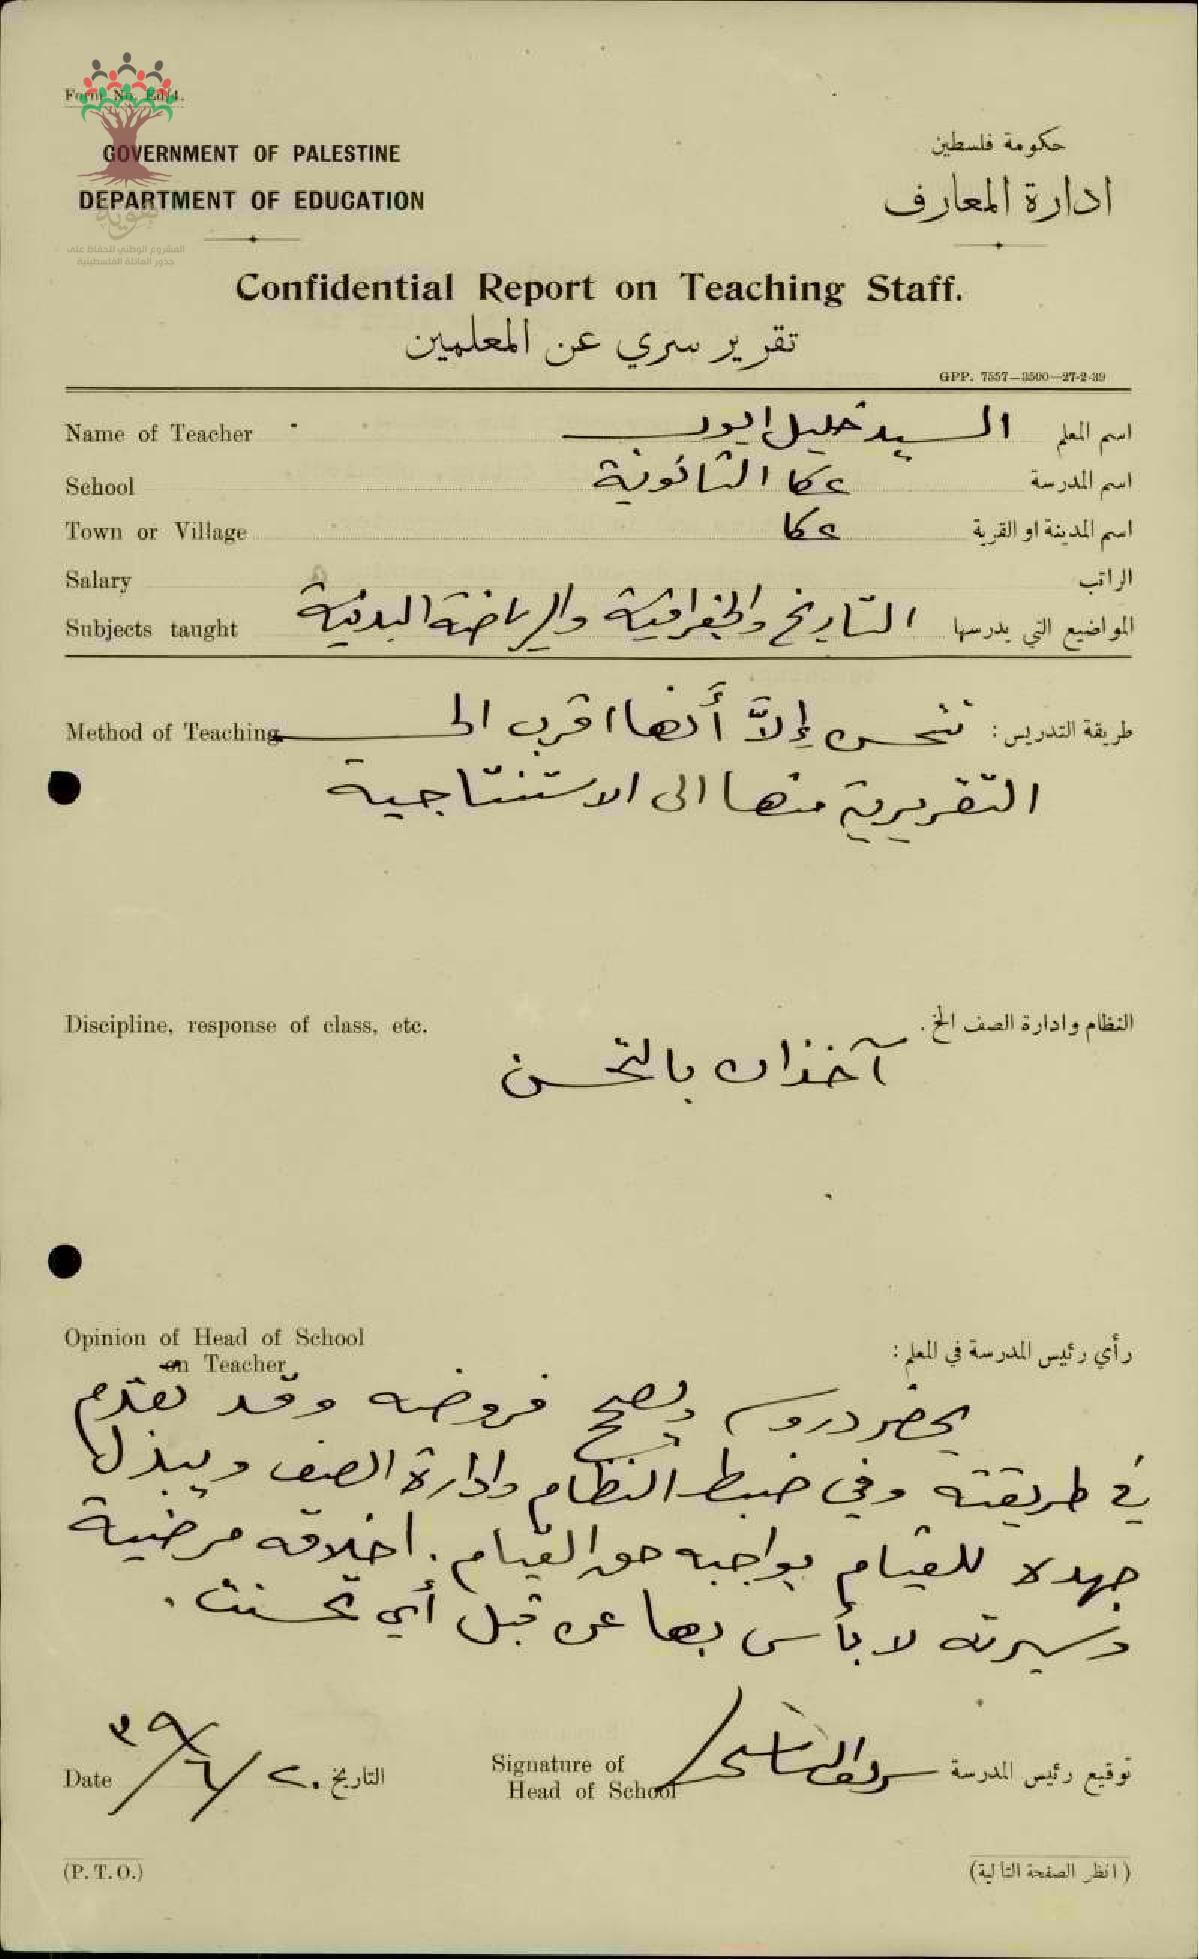 Form No. Ed/4.
GOVERNMENT OF PALESTINE
حكومة فلسطين
DEPARTMENT OF EDUCATION
ادارة المعارف
هوية
المشروع الوطني للحفاظ على
جذور العائلة الفلسطينية
Confidential Report on Teaching Staff.
تقرير سري عن المعلمين
GPP. 7557—3500—27-2-39
Name of Teacher السيد خليل ايوب اسم المعلم
School عكا الثانوية اسم المدرسة
Town or Village عكا اسم المدينة او القرية
Salary الراتب
Subjects taught التاريخ والجغرافية والرياضة البدنية المواضيع التي يدرسها
Method of Teaching تتحسن إلاَّ أَنها اقرب الى طريقة التدريس :
التقريرية منها الى الاستنتاجية
Discipline, response of class, etc. النظام وادارة الصف الخ .
آخذان بالتحسن
Opinion of Head of School
on Teacher رأي رئيس المدرسة في المعلم :
يحضر دروسه ويصحح فروضه وقد تقدم
في طريقته وفي ضبط النظام وادارة الصف ويبذل
جهده للقيام بواجبه حق القيام . اخلاقه مرضية
وسيرته لا بأس بها عن قبل أي تحسنت .
Date ٢٠/٦/٣٩ التاريخ
Signature of
Head of School توقيع رئيس المدرسة
(P. T. O.)
(انظر الصفحة التالية)